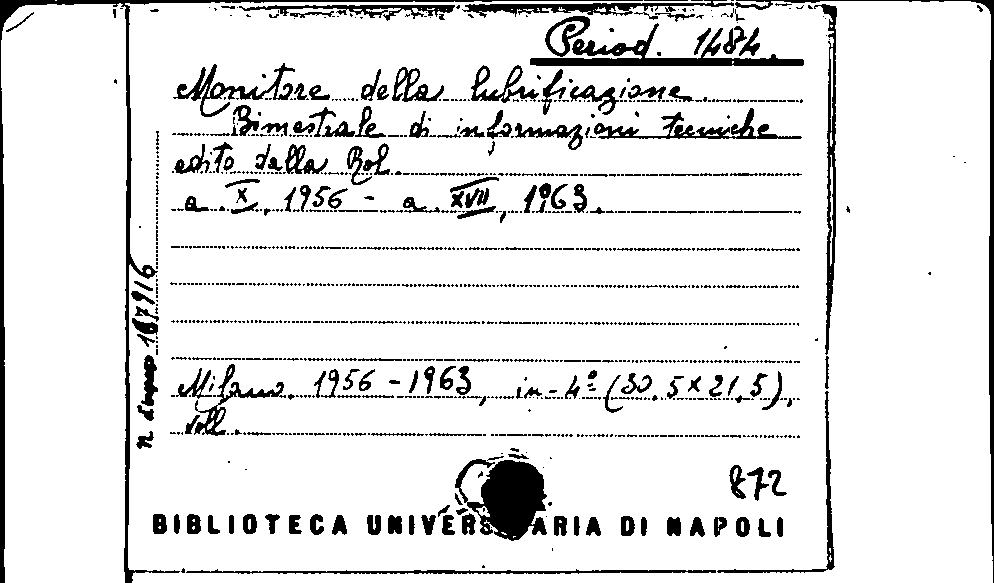 Period. 1484.
Monitore della lubrificazione.
Bimestrale di informazioni tecniche
edito dalla Rol.
a. X, 1956 - a. XVII, 1963.
Milano. 1956 - 1963, in-4º (30,5 x 21,5),
voll.
n. d'ingresso
872
BIBLIOTECA UNIVERSITARIA DI NAPOLI